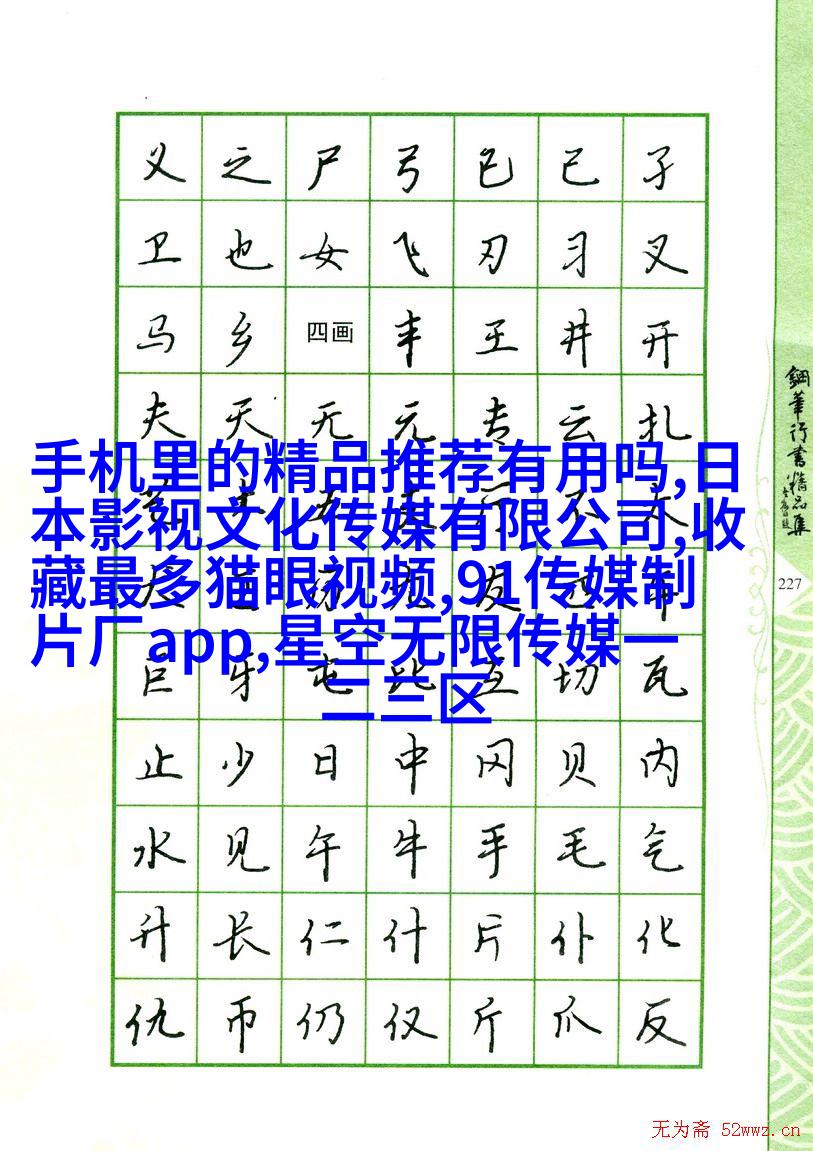 义之尸弓已己子
卫也女飞刃习叉
马乡四画丰王井开
夫天无元专云扎
手机里的精品推荐有用吗,日
本影视文化传媒有限公司,收
藏最多猫眼视频,91传媒制
片厂app,星空无限传媒一
二三区
巨牙屯比互切瓦
止少日中冈贝内
水见午牛手毛气
升长仁什片仆化
仇币仍仅斤爪反
钢笔行书精品集
227
无为斋 52wwz.cn